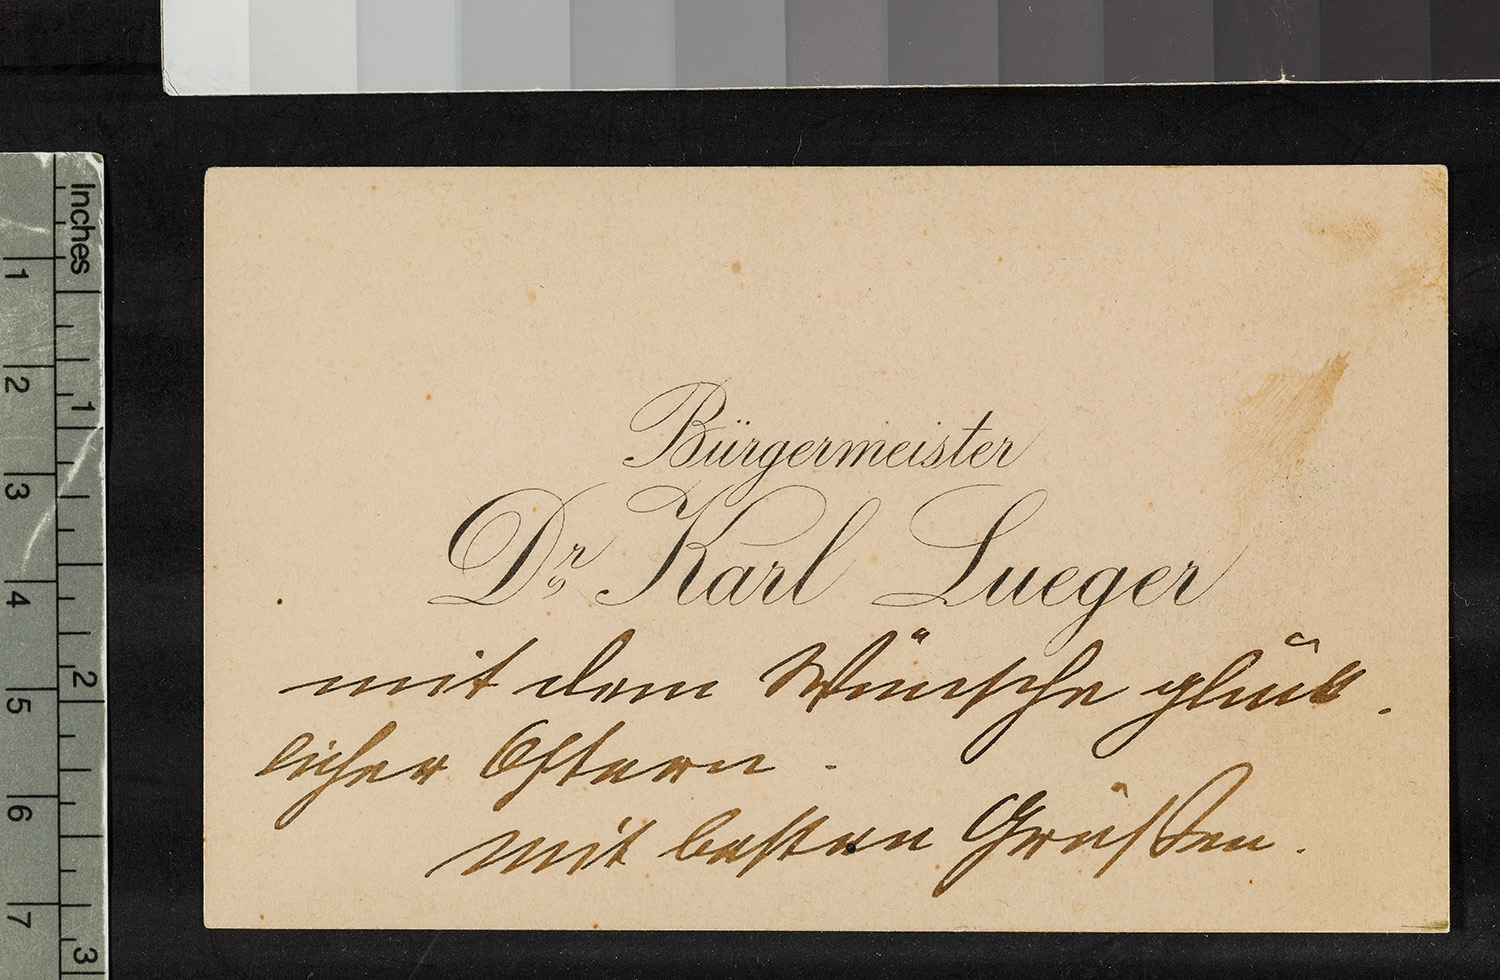 Inches
1
2
3
4
5
6
7
1
2
3
Bürgermeister
Dr. Karl Lueger
mit dem Wunsche glück-
licher Ostern.
Mit besten Grüßen.